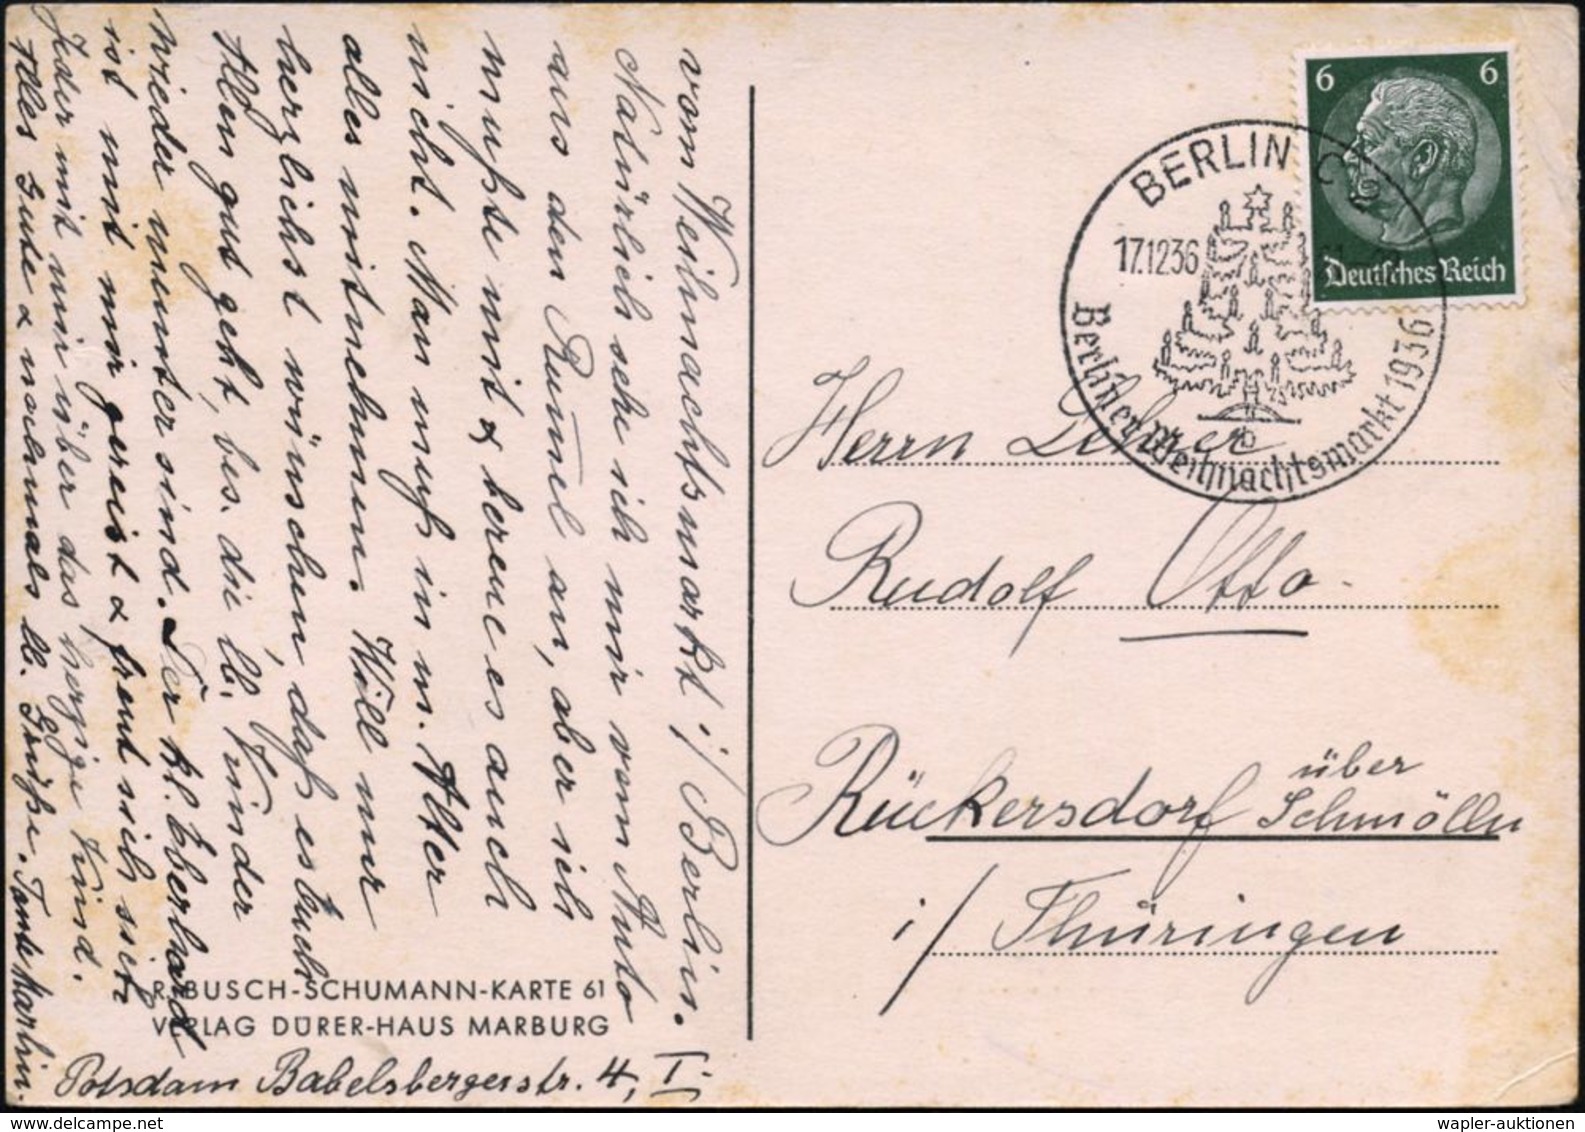 vom Weihnachtsmarkt i/ Berlin.
Natürlich sehe ich mir vom Auto
aus den Rummel an, aber ich
mußte mit &amp; hereue es auch
nicht. Man muß in m. Alter
alles mitnehmen. Will nur
herzlichst wünschen, daß es Euch
Allen gut geht, bes. die lb. Kinder
wieder munter sind. Der kl. Eberhard
ist mit mir gereist & freut sich sehr
Jeder mit mir über das herzige Kind.
Alles Gute & nochmals lb. Grüße. Tante Marlin.
Potsdam Babelsbergerstr. 4, I.
R. BUSCH-SCHUMANN-KARTE 61
VERLAG DÜRER-HAUS MARBURG
6 6
Deutsches Reich
BERLIN C 2
17.12.36
b
Berliner Weihnachtsmarkt 1936
Herrn Lehrer
Rudolf Otto
Rückersdorf über
Schmölln
i/ Thüringen
wapler-auktionen